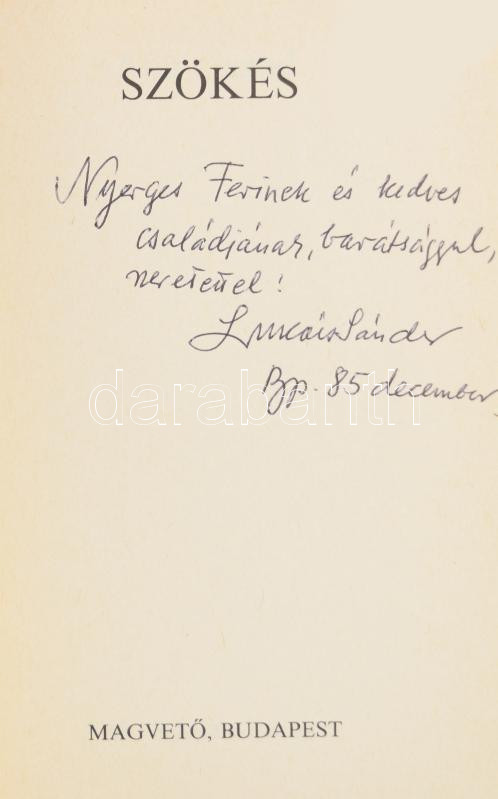 SZÖKÉS
Nyerges Ferinek és kedves
családjának, barátsággal,
szeretettel!
Lukács Sándor
Bp. 85 december
darabanth
MAGVETŐ, BUDAPEST